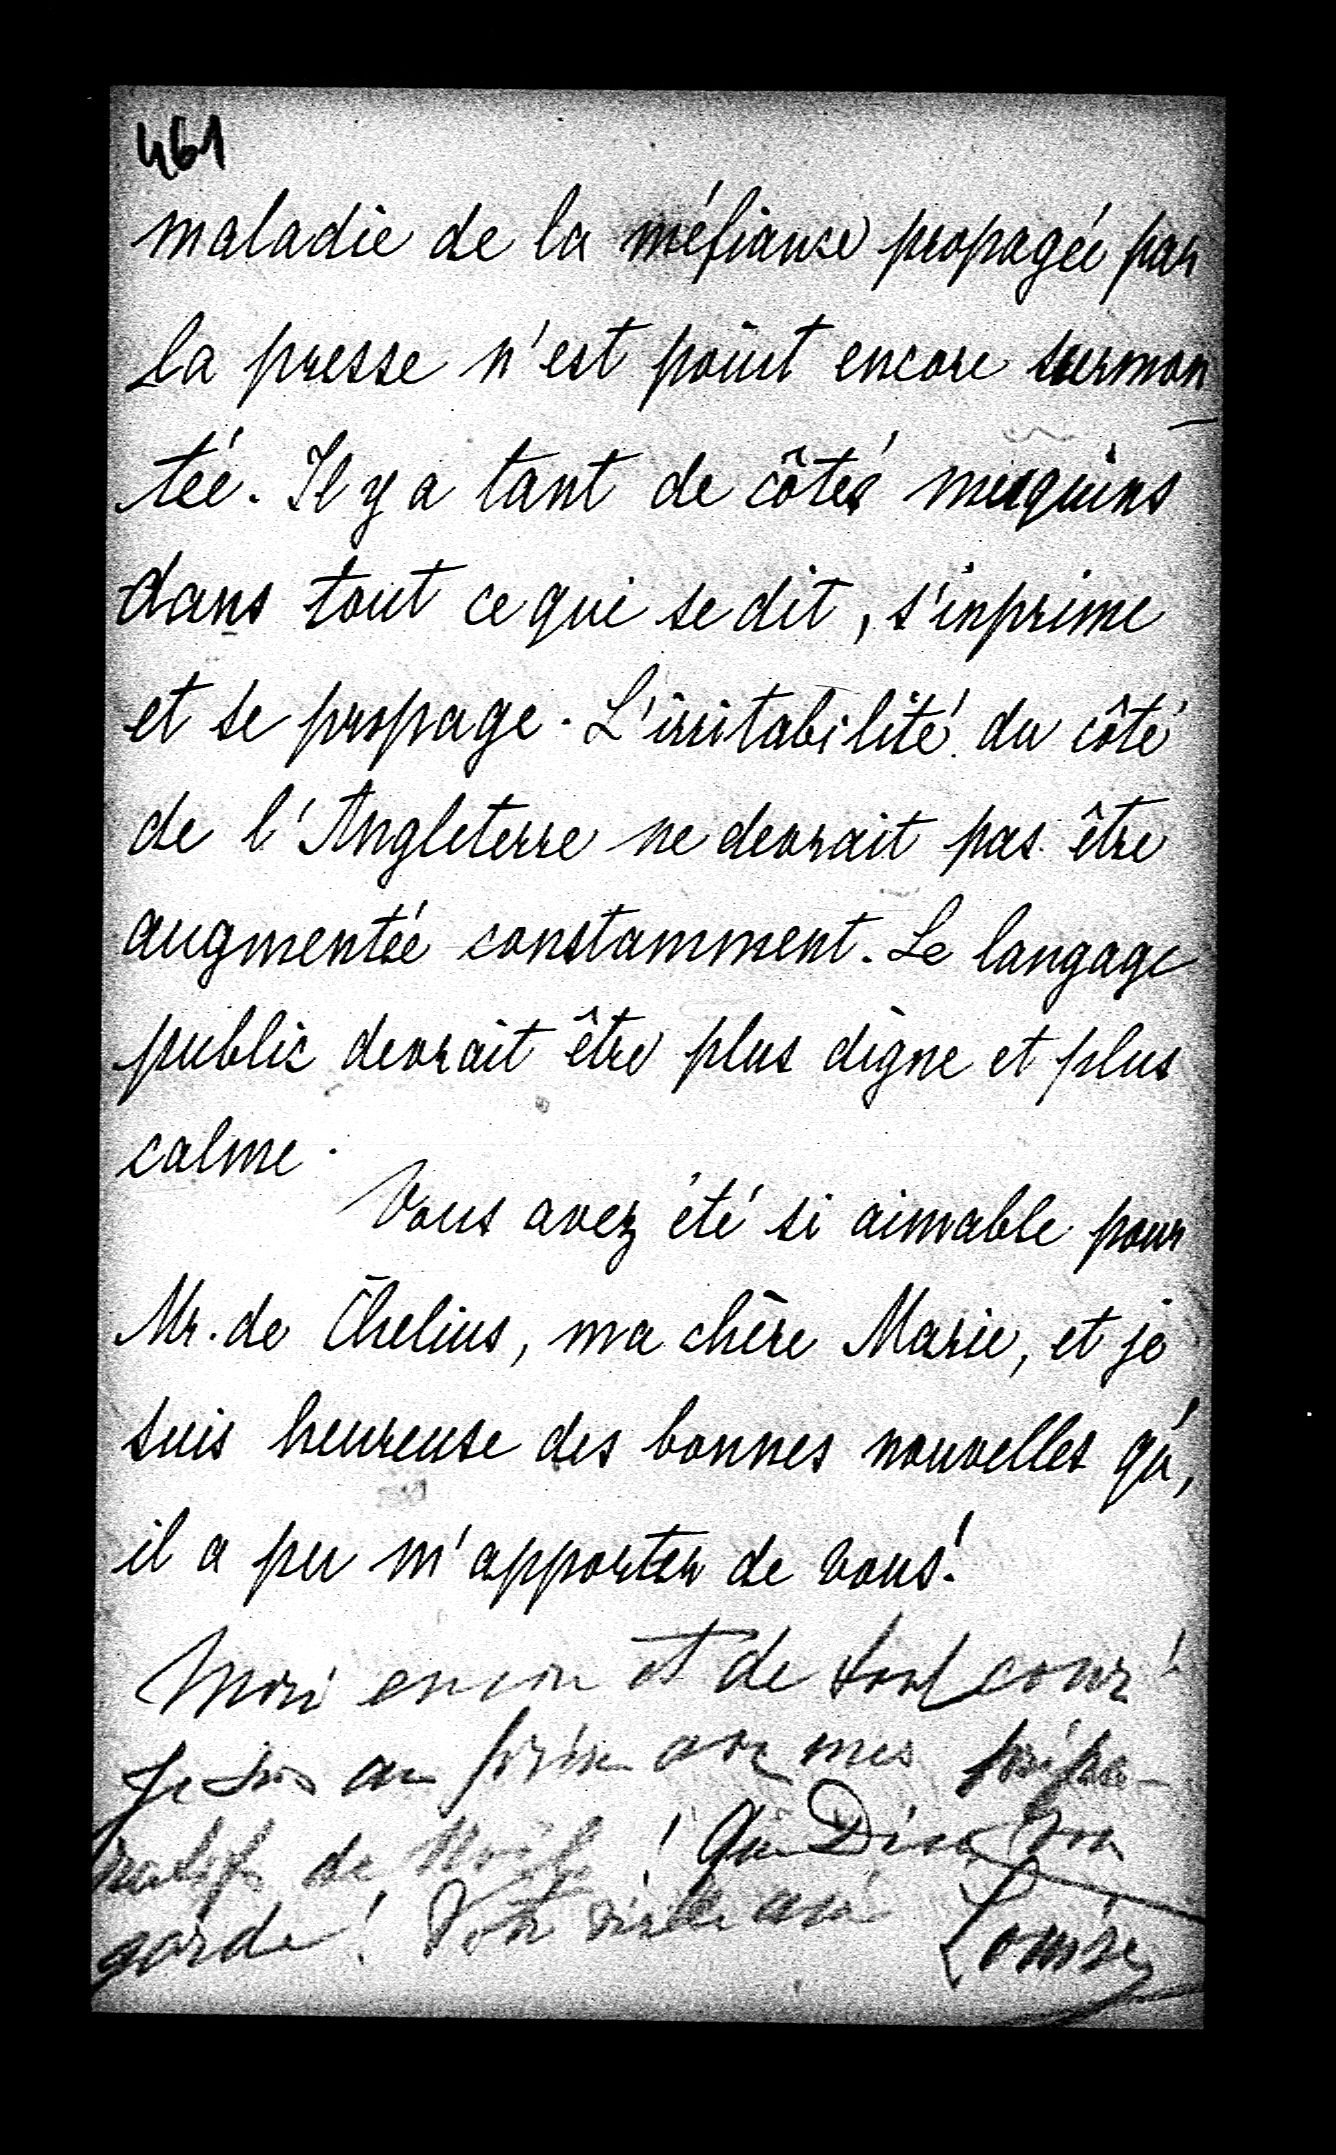 461
maladie de la méfiance propagée par
la presse n'est point encore surmon
tée. Il y a tant de côtés mesquins
dans tout ce qui se dit, s'inprime
et se propage. L'irritabilité du côté
de l'Angleterre ne devrait pas être
augmentée constamment. Le langage
public devrait être plus digne et plus
calme.
Vous avez été si aimable pour
Mr. de Chelius, ma chère Marie, et je
suis heureuse des bonnes nouvelles qu',
il a pu m'apporter de vous!
Merci encore et de tout cœur!
Je suis en avec mes prépa-
ratifs de Noël! Que Dieu vous
garde! Votre vieille amie Louise